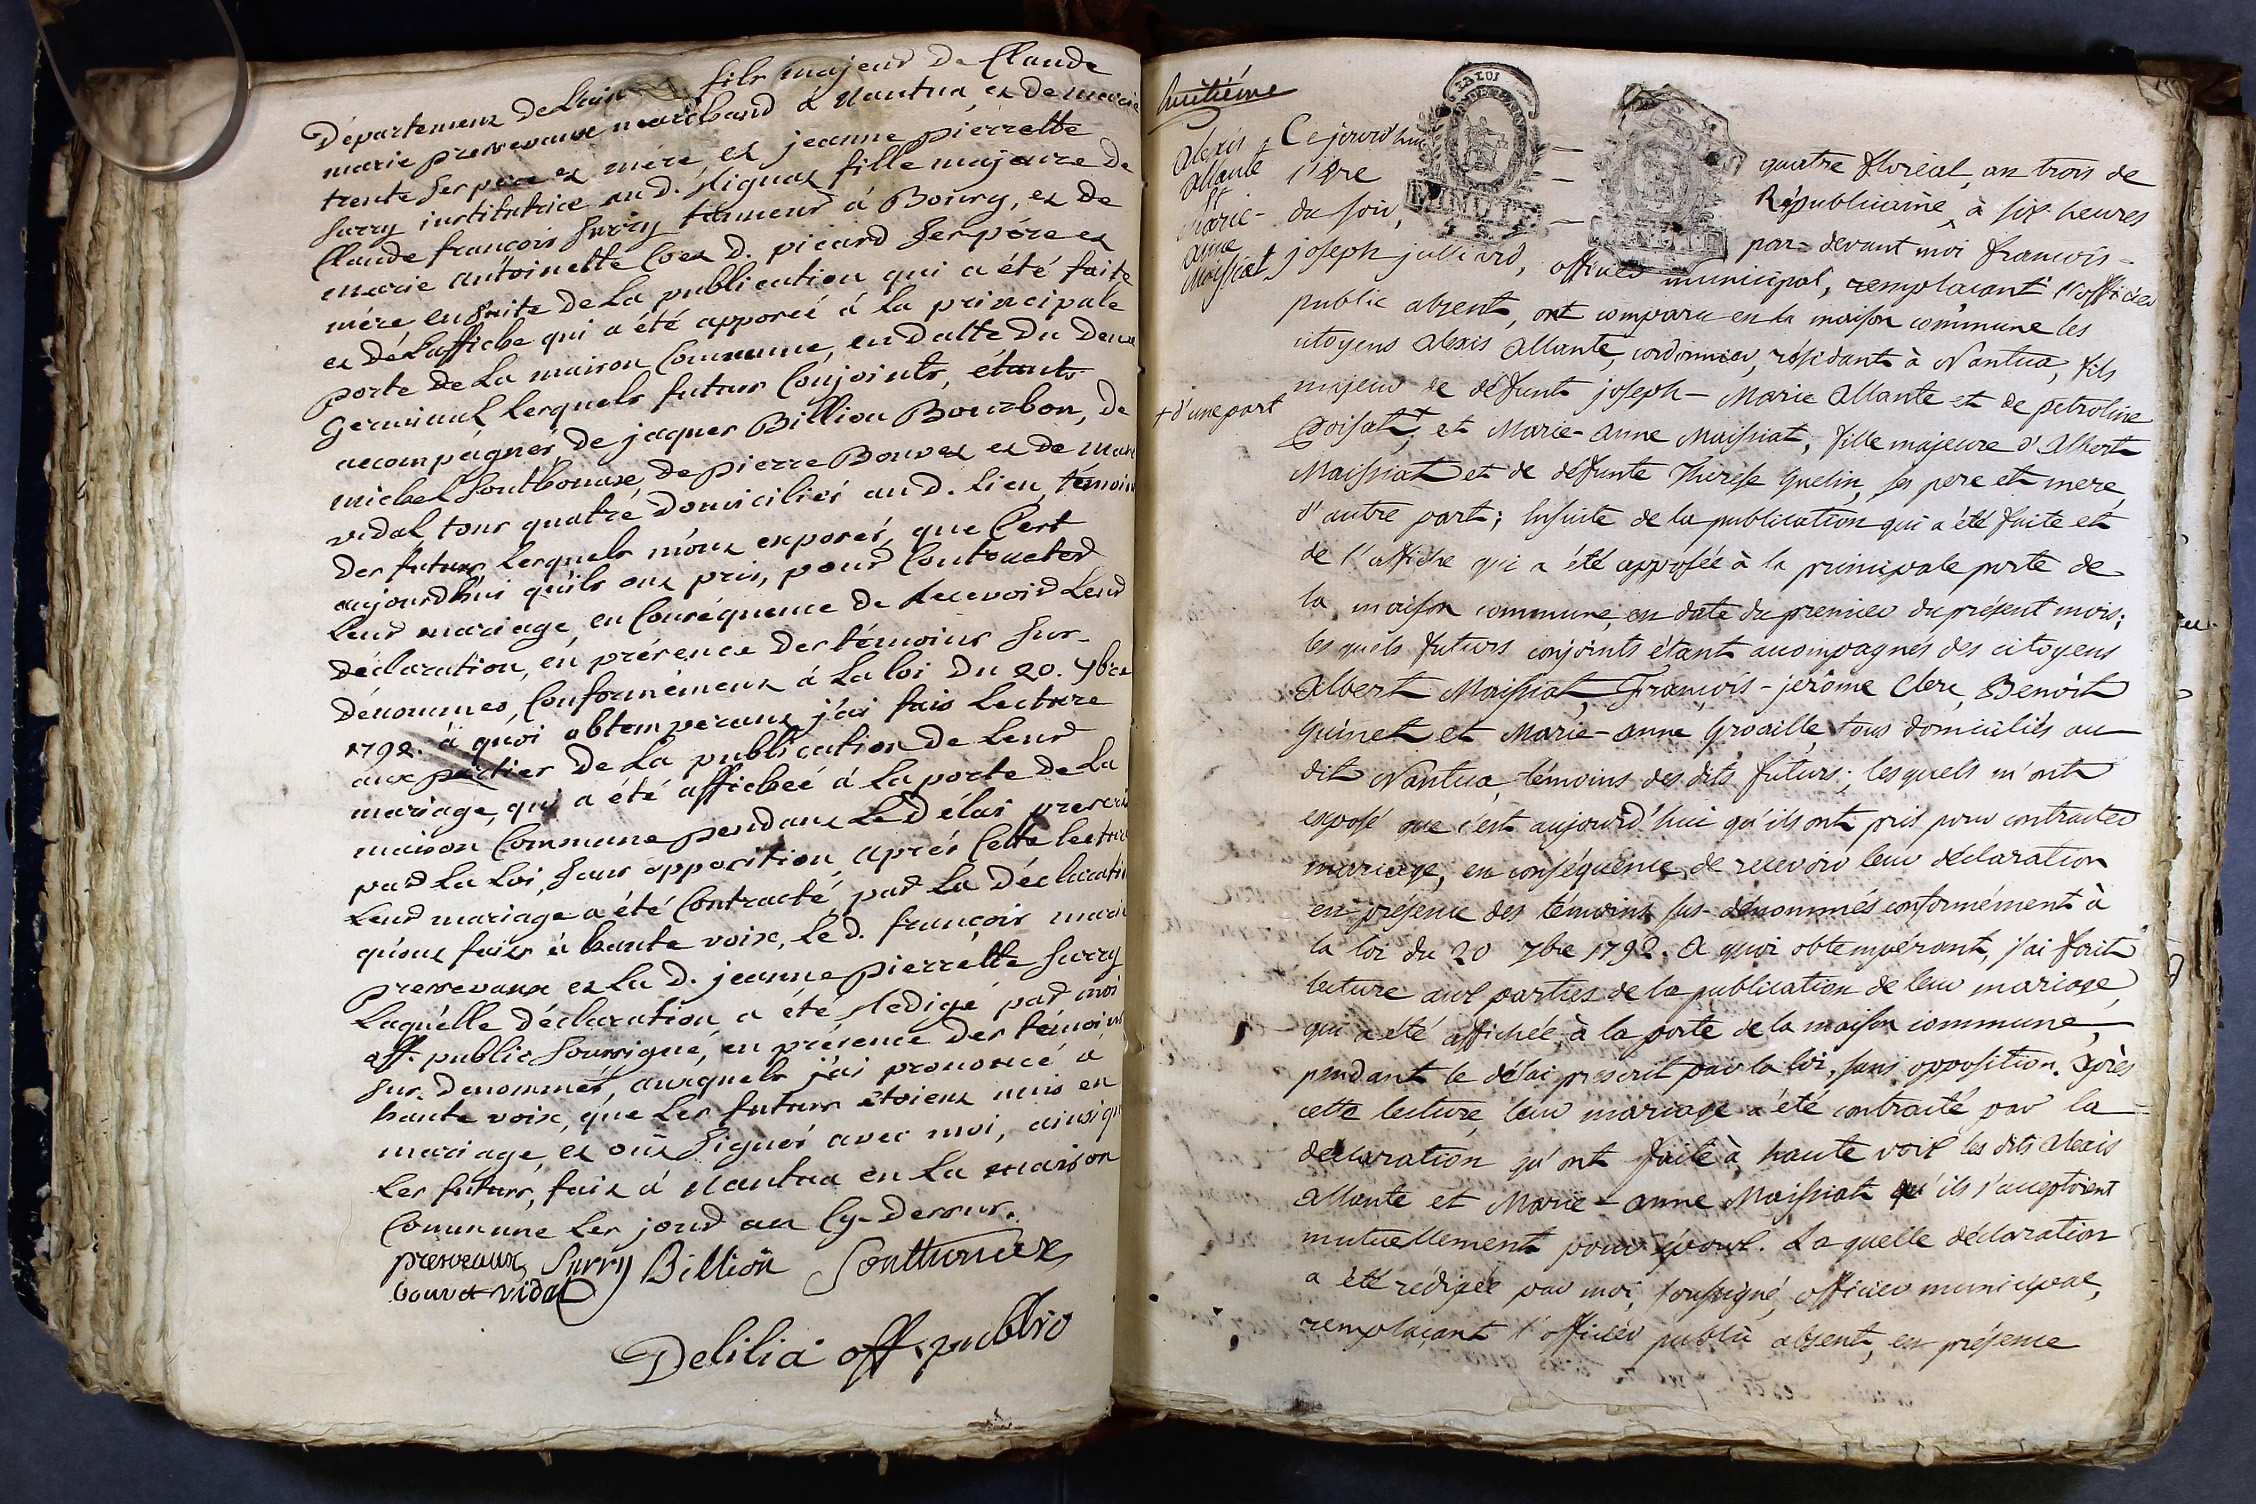 Département de Lain fils majeur de Claude
marie pressevaux marchand à Nantua et de marie
trente ses père et mère, et jeanne pierrette
Surry institutrice au d. fille majeure de
Claude françois Surry tanneur à Bourg, et de
marie antoinette d. picard ses père et
mère, ensuite de La publication qui a été faite
et de Laffiche qui a été apposeé à la principale
porte de La maison Commune, en datte du deux
Germinal Lesquels futurs Conjoints, étants
accompagnés, de jaques Billion Bourbon, de
michel Southonax, de pierre Bouvet et de
vidal tous quatre domiciliés au d. Lieu, témoins
des futurs Lesquels m'ont exposés, que C'est
aujourdhui qu'ils ont pris, pour Contracter
Leur mariage, en Conséquence de Recevoir Leur
déclaration, en présence des témoins sus-
dénommes, Conformément à La loi du 20. 7bre
1792. à quoi obtemperant j'ai fais Lecture
aux parties de La publication de Leur
mariage, qui a été afficheé à La porte de La
maison Commune pendant Le délai prescrit
par La Loi, sans opposition, après Cette lecture
Leur mariage a été Contracté, par La déclaration
qu'ont fait à haute voix, Le d. françois marie
pressevaux et La d. jeanne pierrette Surry
Laquelle déclaration a été rédigé par moi
off. public soussigné, en présence des témoins
sus-denommés, auxquels j'ai prononcé à
haute voix, que Les futurs étoient unis en
mariage, et ont Signés avec moi, ainsi que
Les futurs, fait à Nantua en La maison
Commune Les jour an Cy-dessus.
presveaux, Surry Billion Southonax
bouvet vidal
Delilia off. public
huitiéme
Alexis
Allante
et
Marie-
anne
Maissiat
Ce jourd'hui quatre floréal, an trois de
l'Ere Républicaine, à six heures
du soir, par-devant moi françois-
joseph julliard, officier municipal, remplacant l'officier
public absent, ont comparu en la maison commune les
citoyens Alexis Allante, cordonnier, résidant à Nantua, fils
majeur de défunt joseph-Marie Allante et de petroline
+ d'une part
Poisat,+ et Marie-anne Maissiat, fille majeure d'Albert
Maissiat et de défunte Therese Guelin, ses pere et mere,
d'autre part; Ensuite de la publication qui a été faite et
de l'affiche qui a été apposée à la principale porte de
la maison commune, en date du premier du présent mois;
les quels futurs conjoints étant accompagnés des citoyens
Albert Maissiat, François-jerôme Clerc, Benoît
Guinet et Marie-anne Grosille, tous domiciliés au
dit Nantua, témoins des dits futurs; lesquels m'ont
exposé que c'est aujourd'hui qu'ils ont pris pour contracter
mariage, en conséquence, de recevoir leur déclaration
en présence des témoins sus-dénommés conformément à
la loi du 20 7bre 1792. A quoi obtempérant, j'ai fait
lecture aux parties de la publication de leur mariage,
qui a été affichée à la porte de la maison commune,
pendant le délai prescrit par la loi, sans opposition. Après
cette lecture, leur mariage a été contracté par la
déclaration qu'ont faite à haute voix les dits Alexis
Allante et Marie-anne Maissiat qu'ils s'acceptoient
mutuellement pour époux. La quelle déclaration
a été rédigée par moi, soussigné, officier municipal,
remplaçant l'officier public absent, en présence